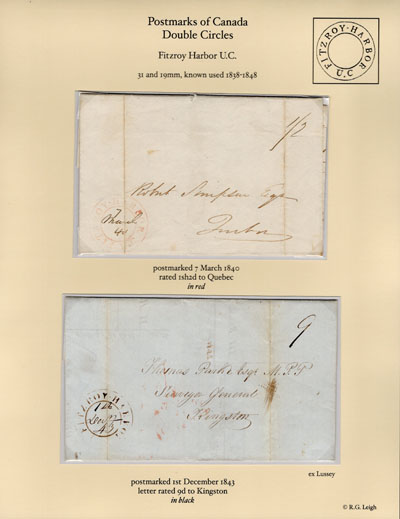 Postmarks of Canada
Double Circles
Fitzroy Harbor U.C.
31 and 19mm, known used 1838-1848
FITZROY·HARBOR
U.C
1/2
Robert Simpson Esqr
7
March
40
Quebec
postmarked 7 March 1840
rated 1sh2d to Quebec
in red
9
Thomas Parke Esqr M.P.P
Surveyor General
Kingston
FITZROY HARBOR
1st
Decr
43
ex Lussey
postmarked 1st December 1843
letter rated 9d to Kingston
in black
© R.G. Leigh